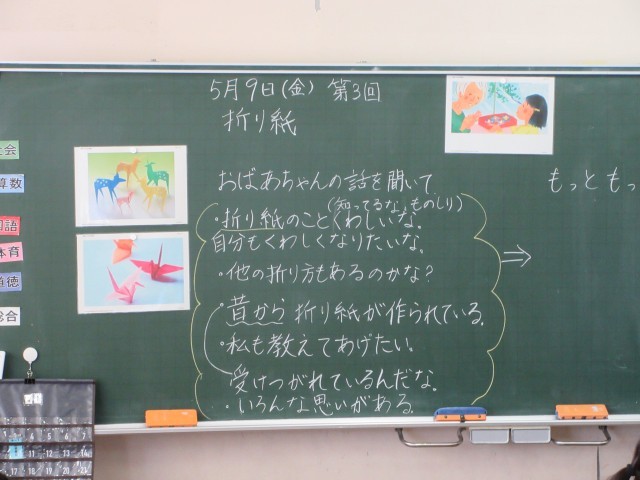 5月9日(金) 第3回
折り紙
おばあちゃんの話を聞いて
(知ってるな、ものしり)
・折り紙のことくわしいな。
自分もくわしくなりたいな。
・他の折り方もあるのかな?
・昔から折り紙が作られている。
・私も教えてあげたい。
受けつがれているんだな。
・いろんな思いがある。
⇒
もっともっ
算数
国語
体育
道徳
総合